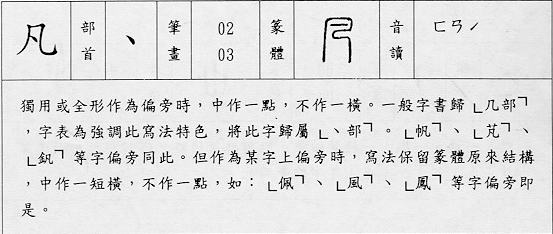 凡 部首 丶 筆畫 02 03 篆體 音讀 ㄈㄢˊ
獨用或全形作為偏旁時，中作一點，不作一橫。一般字書歸└几部┐
，字表為強調此寫法特色，將此字歸屬└丶部┐。└帆┐、└芃┐、
└釩┐等字偏旁同此。但作為某字上偏旁時，寫法保留篆體原來結構
，中作一短橫，不作一點，如：└佩┐、└風┐、└鳳┐等字偏旁即
是。